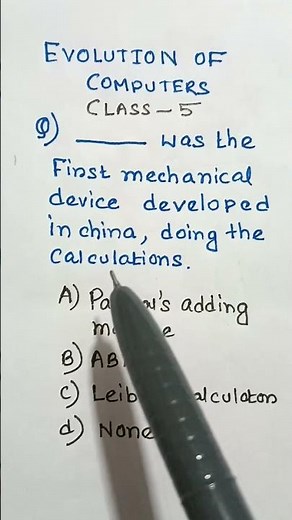 EVOLUTION OF
COMPUTERS
CLASS-5
Q) ______ was the
First mechanical
device developed
in china, doing the
Calculations.
A) adding
B)
C)
d) None